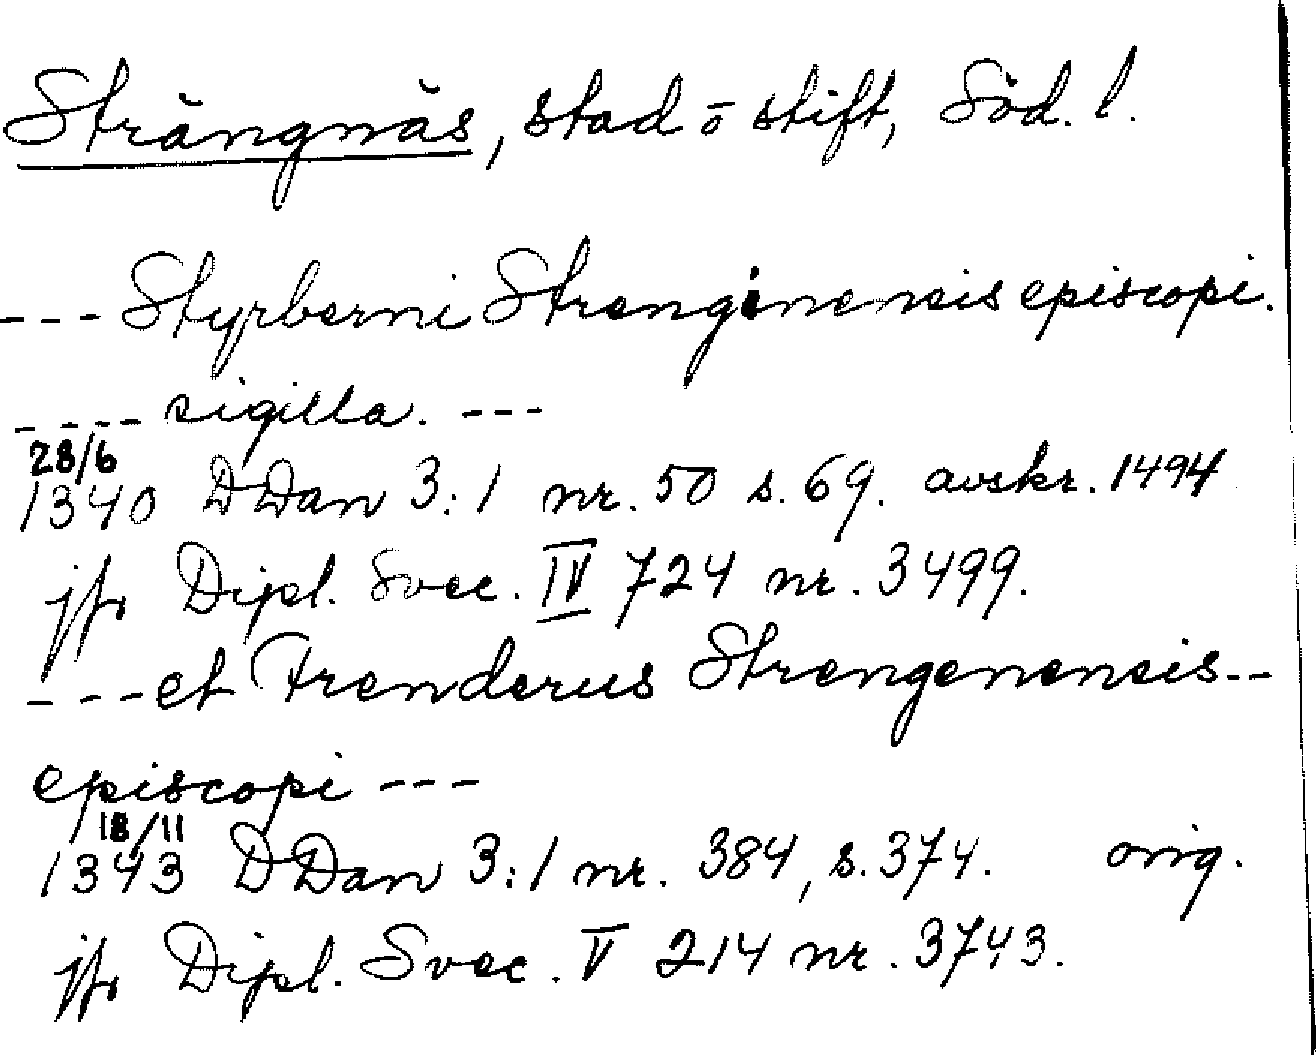 Strängnäs, stad o stift, Söd. l.
--- Styrberni Strenginensis episcopi.
---- sigilla. ---
28/6
1340 DDan 3:1 nr. 50 s. 69. avskr. 1494
jfr Dipl. Svec. IV 724 nr. 3499.
---et Frenderus Strengenensis--
episcopi ---
18/11
1343 DDan 3:1 nr. 384, s. 374. orig.
jfr Dipl. Svec. V 214 nr. 3743.